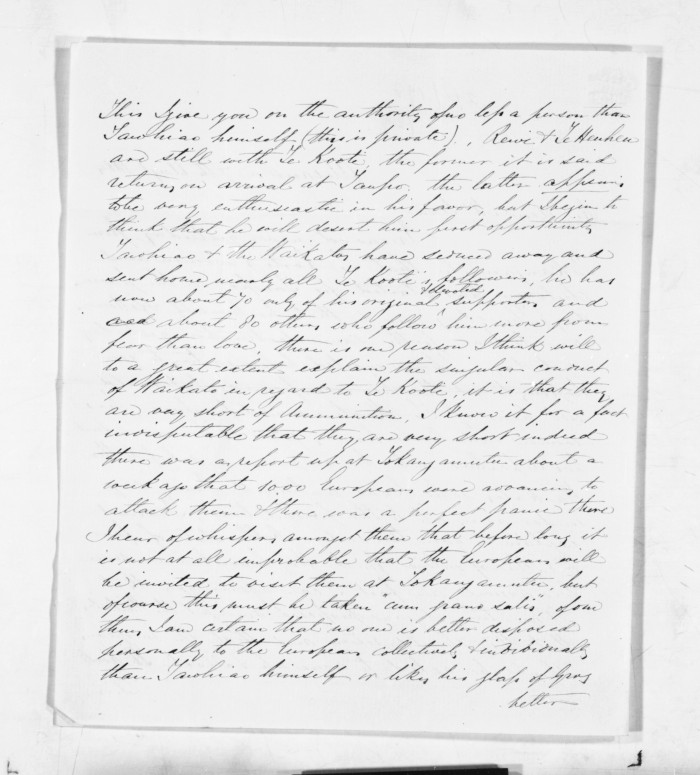 This I give you on the authority of no less a person than
Tawhiao himself (this is private)., Rewi & Te Heuheu
are still with Te Kooti, the former it is said
returns on arrival at Taupo, the latter appears
to be very enthusiastic in his favor, but I begin to
think that he will desert him first opportunity
Tawhiao & the Waikatos have seduced away and
sent home nearly all Te Kooti's followers, he has
now about 70 only of his original & devoted supporters and
about 80 others who follow him more from
fear than love, there is one reason I think will
to a great extent explain the singular conduct
of Waikato in regard to Te Kooti, it is that they
are very short of Ammunition, I know it for a fact
indisputable that they are very short indeed
there was a report up at Tokangamutu about a
week ago that 1000 Europeans were advancing to
attack them & there was a perfect panic there
I hear of whispers amongst them that before long it
is not at all improbable that the Europeans will
be invited to visit them at Tokangamutu, but
of course this must be taken "cum grano salis", of one
thing I am certain that no one is better disposed
personally to the Europeans collectively & individually
than Tawhiao himself or likes his glass of Grog
better